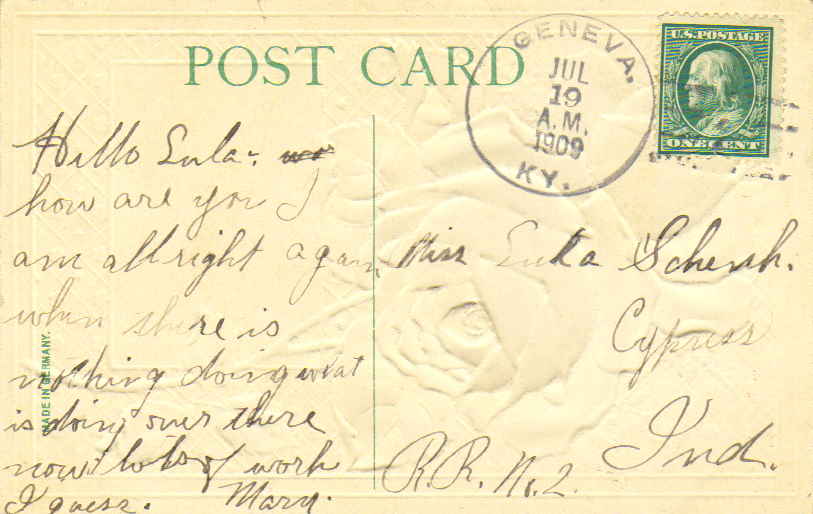 POST CARD
GENEVA,
JUL
19
A.M.
1909
KY.
U.S. POSTAGE
ONE CENT
Hello Lula.
how are you I
am all right again
when there is
nothing doing what
is doing over there
now lots of work
I guess. Mary.
MADE IN GERMANY.
Miss Lula
Cypress
Ind.
R.R. No. 2